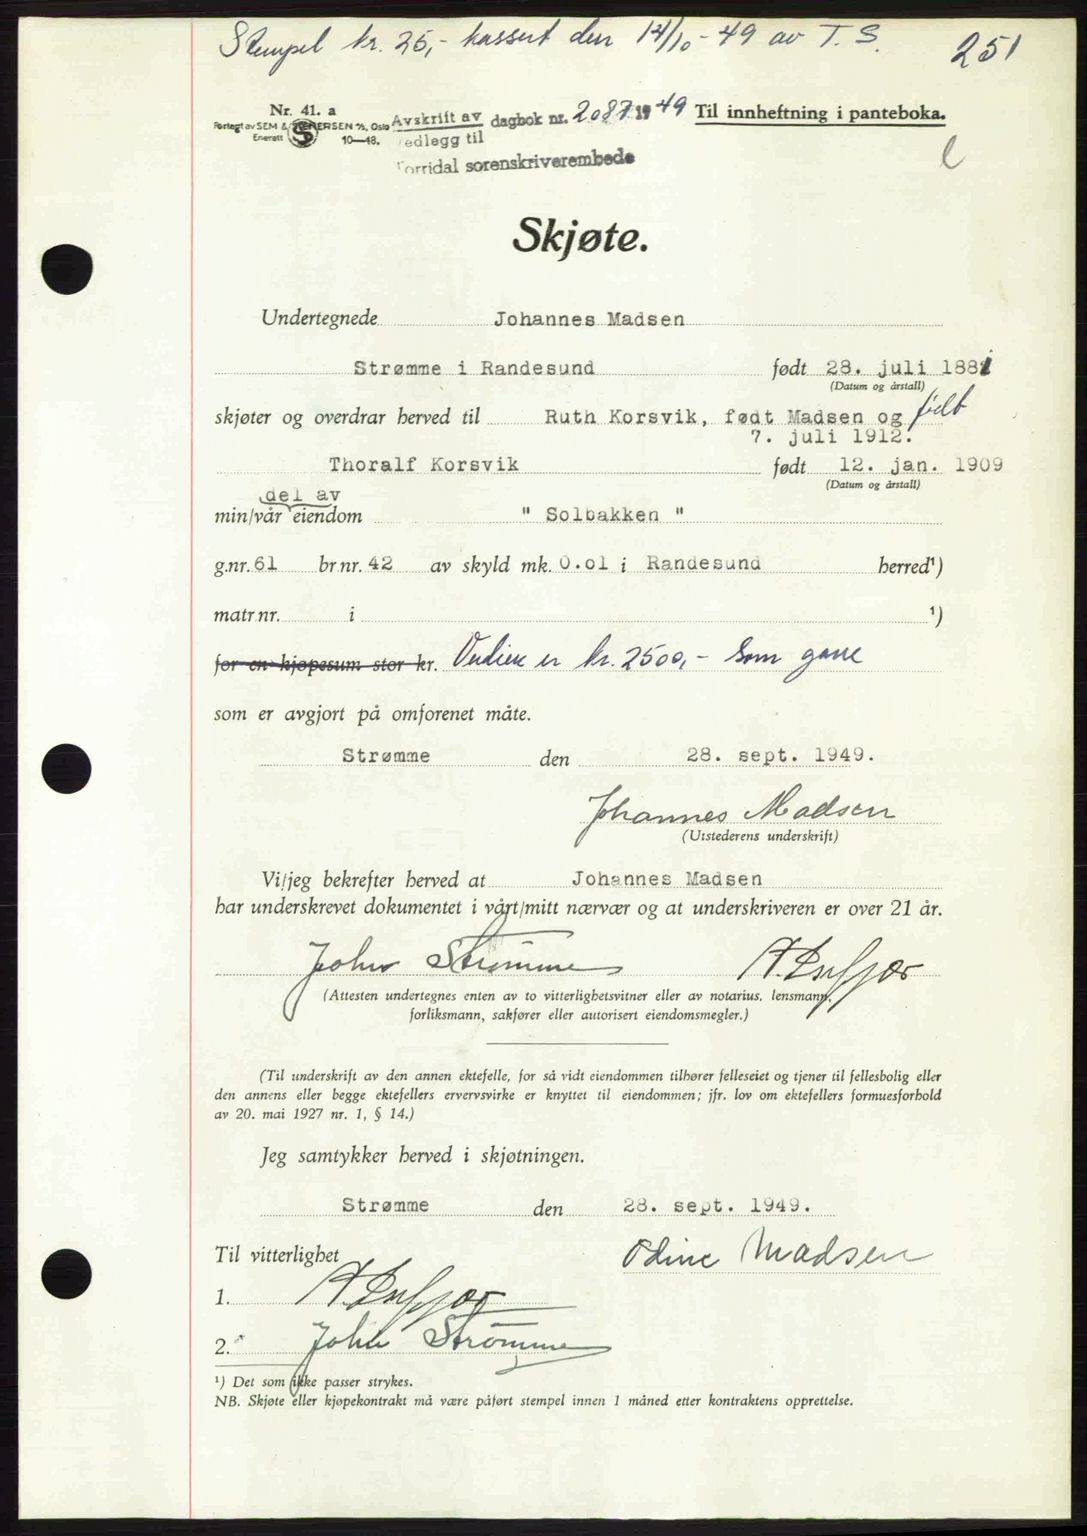 Stempel kr. 25,- kassert den 12/10-49 av T. S.
251
Nr. 41. a
Forlagt av SEM & STENERSEN A/S, Oslo
Enerett 10—48.
Avskrift av dagbok nr. 2087 1949 Til innheftning i panteboka.
Vedlegg til
Torridal sorenskriverembede
Skjøte.
Undertegnede Johannes Madsen
Strømme i Randesund født 28. juli 1881
(Datum og årstall)
skjøter og overdrar herved til Ruth Korsvik, født Madsen og født
7. juli 1912.
Thoralf Korsvik født 12. jan. 1909
(Datum og årstall)
del av
min/vår eiendom " Solbakken "
g.nr. 61 br.nr. 42 av skyld mk. 0.01 i Randesund herred¹)
matr.nr. i ¹)
for en kjøpesum stor kr. Verdien er kr. 2500,- som gave
som er avgjort på omforenet måte.
Strømme den 28. sept. 1949.
Johannes Madsen
(Utstederens underskrift)
Vi/jeg bekrefter herved at Johannes Madsen
har underskrevet dokumentet i vårt/mitt nærvær og at underskriveren er over 21 år.
John Strømme
(Attesten undertegnes enten av to vitterlighetsvitner eller av notarius, lensmann,
forliksmann, sakfører eller autorisert eiendomsmegler.)
(Til underskrift av den annen ektefelle, for så vidt eiendommen tilhører felleseiet og tjener til fellesbolig eller
den annens eller begge ektefellers ervervsvirke er knyttet til eiendommen; jfr. lov om ektefellers formuesforhold
av 20. mai 1927 nr. 1, § 14.)
Jeg samtykker herved i skjøtningen.
Strømme den 28. sept. 1949.
Til vitterlighet Odine Madsen
1.
2. John Strømme
¹) Det som ikke passer strykes.
NB. Skjøte eller kjøpekontrakt må være påført stempel innen 1 måned etter kontraktens opprettelse.